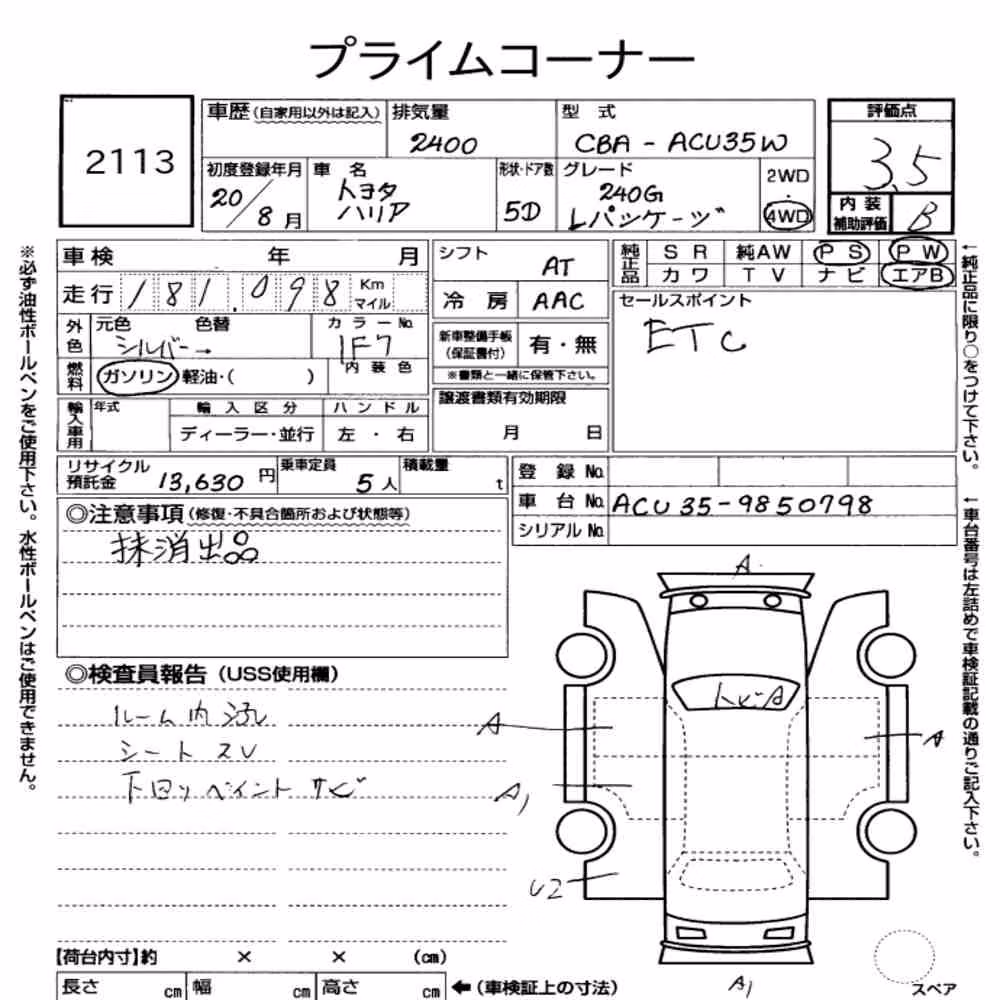 プライムコーナー
2113
車歴(自家用以外は記入) 排気量 2400 型式 CBA-ACU35W
評価点 3.5
初度登録年月 20/8月 車名 トヨタ ハリア 形状・ドア数 5D グレード 240G Lパッケージ 2WD・4WD
内装補助評価 B
車検 年 月
走行 181,098 Km マイル
シフト AT
冷房 AAC
純正品 SR 純AW PS PW
カワ TV ナビ エアB
セールスポイント
ETC
外色 元色 シルバー→ 色替 カラーNo. 1F7
燃料 ガソリン 軽油・( ) 内装色
新車整備手帳(保証書付) 有・無
※書類と一緒に保管下さい。
輸入車用 年式 輸入区分 ハンドル
ディーラー・並行 左・右
譲渡書類有効期限
月 日
リサイクル預託金 13,630円 乗車定員 5人 積載量 t
登録No.
車台No. ACU35-9850798
シリアルNo.
◎注意事項(修復・不具合箇所および状態等)
抹消出品
◎検査員報告(USS使用欄)
ルーム内汚れ
シートスレ
下回りペイント サビ
A
トビA
A
A
A1
U2
A1
スペア
【荷台内寸】約 × × (cm)
長さ cm 幅 cm 高さ cm ←(車検証上の寸法)
※必ず油性ボールペンをご使用下さい。水性ボールペンはご使用できません。
←純正品に限り○をつけて下さい。
←車台番号は左詰めで車検証記載の通りご記入下さい。